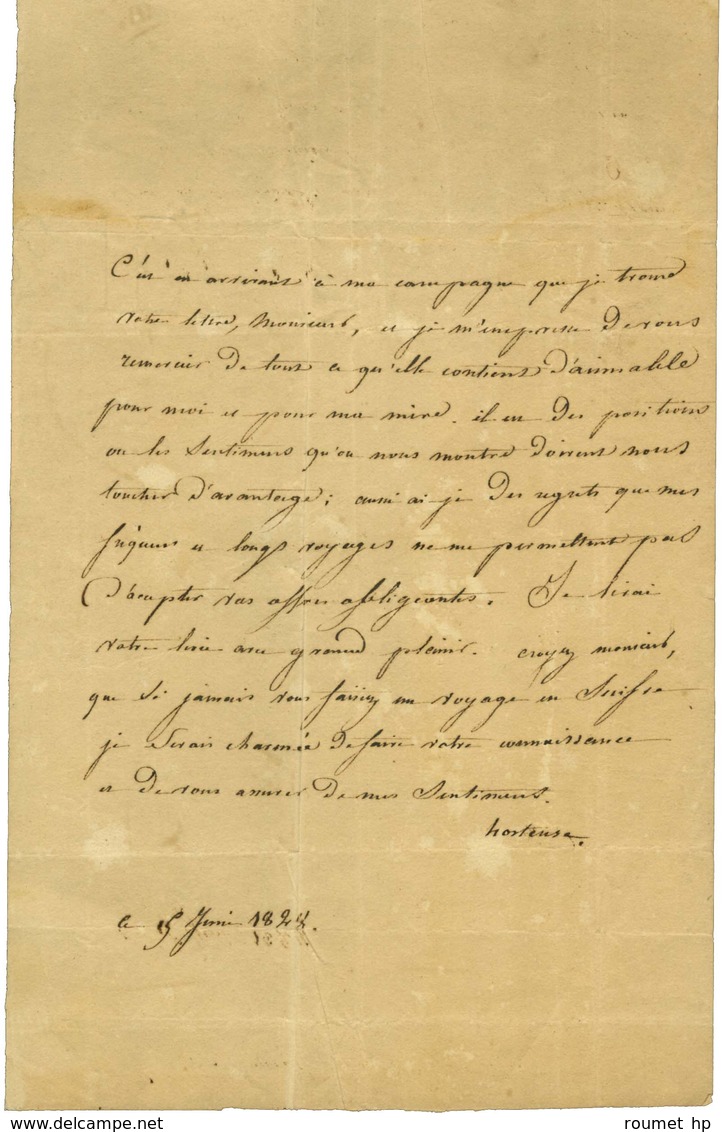 C'est en arrivant à ma campagne que je trouve
votre lettre, Monsieur, et je m'empresse de vous
remercier de tout ce qu'elle contient d'aimable
pour moi et pour ma mère. il est des positions
ou les sentimens qu'on nous montre doivent nous
toucher d'avantage; aussi ai-je des regrets que mes
fréquens et longs voyages ne me permettent pas
d'accepter vos offres obligeantes. Je lirai
votre livre avec grand plaisir. croyez monsieur,
que si jamais vous faisiez un voyage en Suisse
je serais charmée de faire votre connaissance
et de vous assurer de mes sentimens.
hortense.
ce 5 Juin 1828.
roumet hp